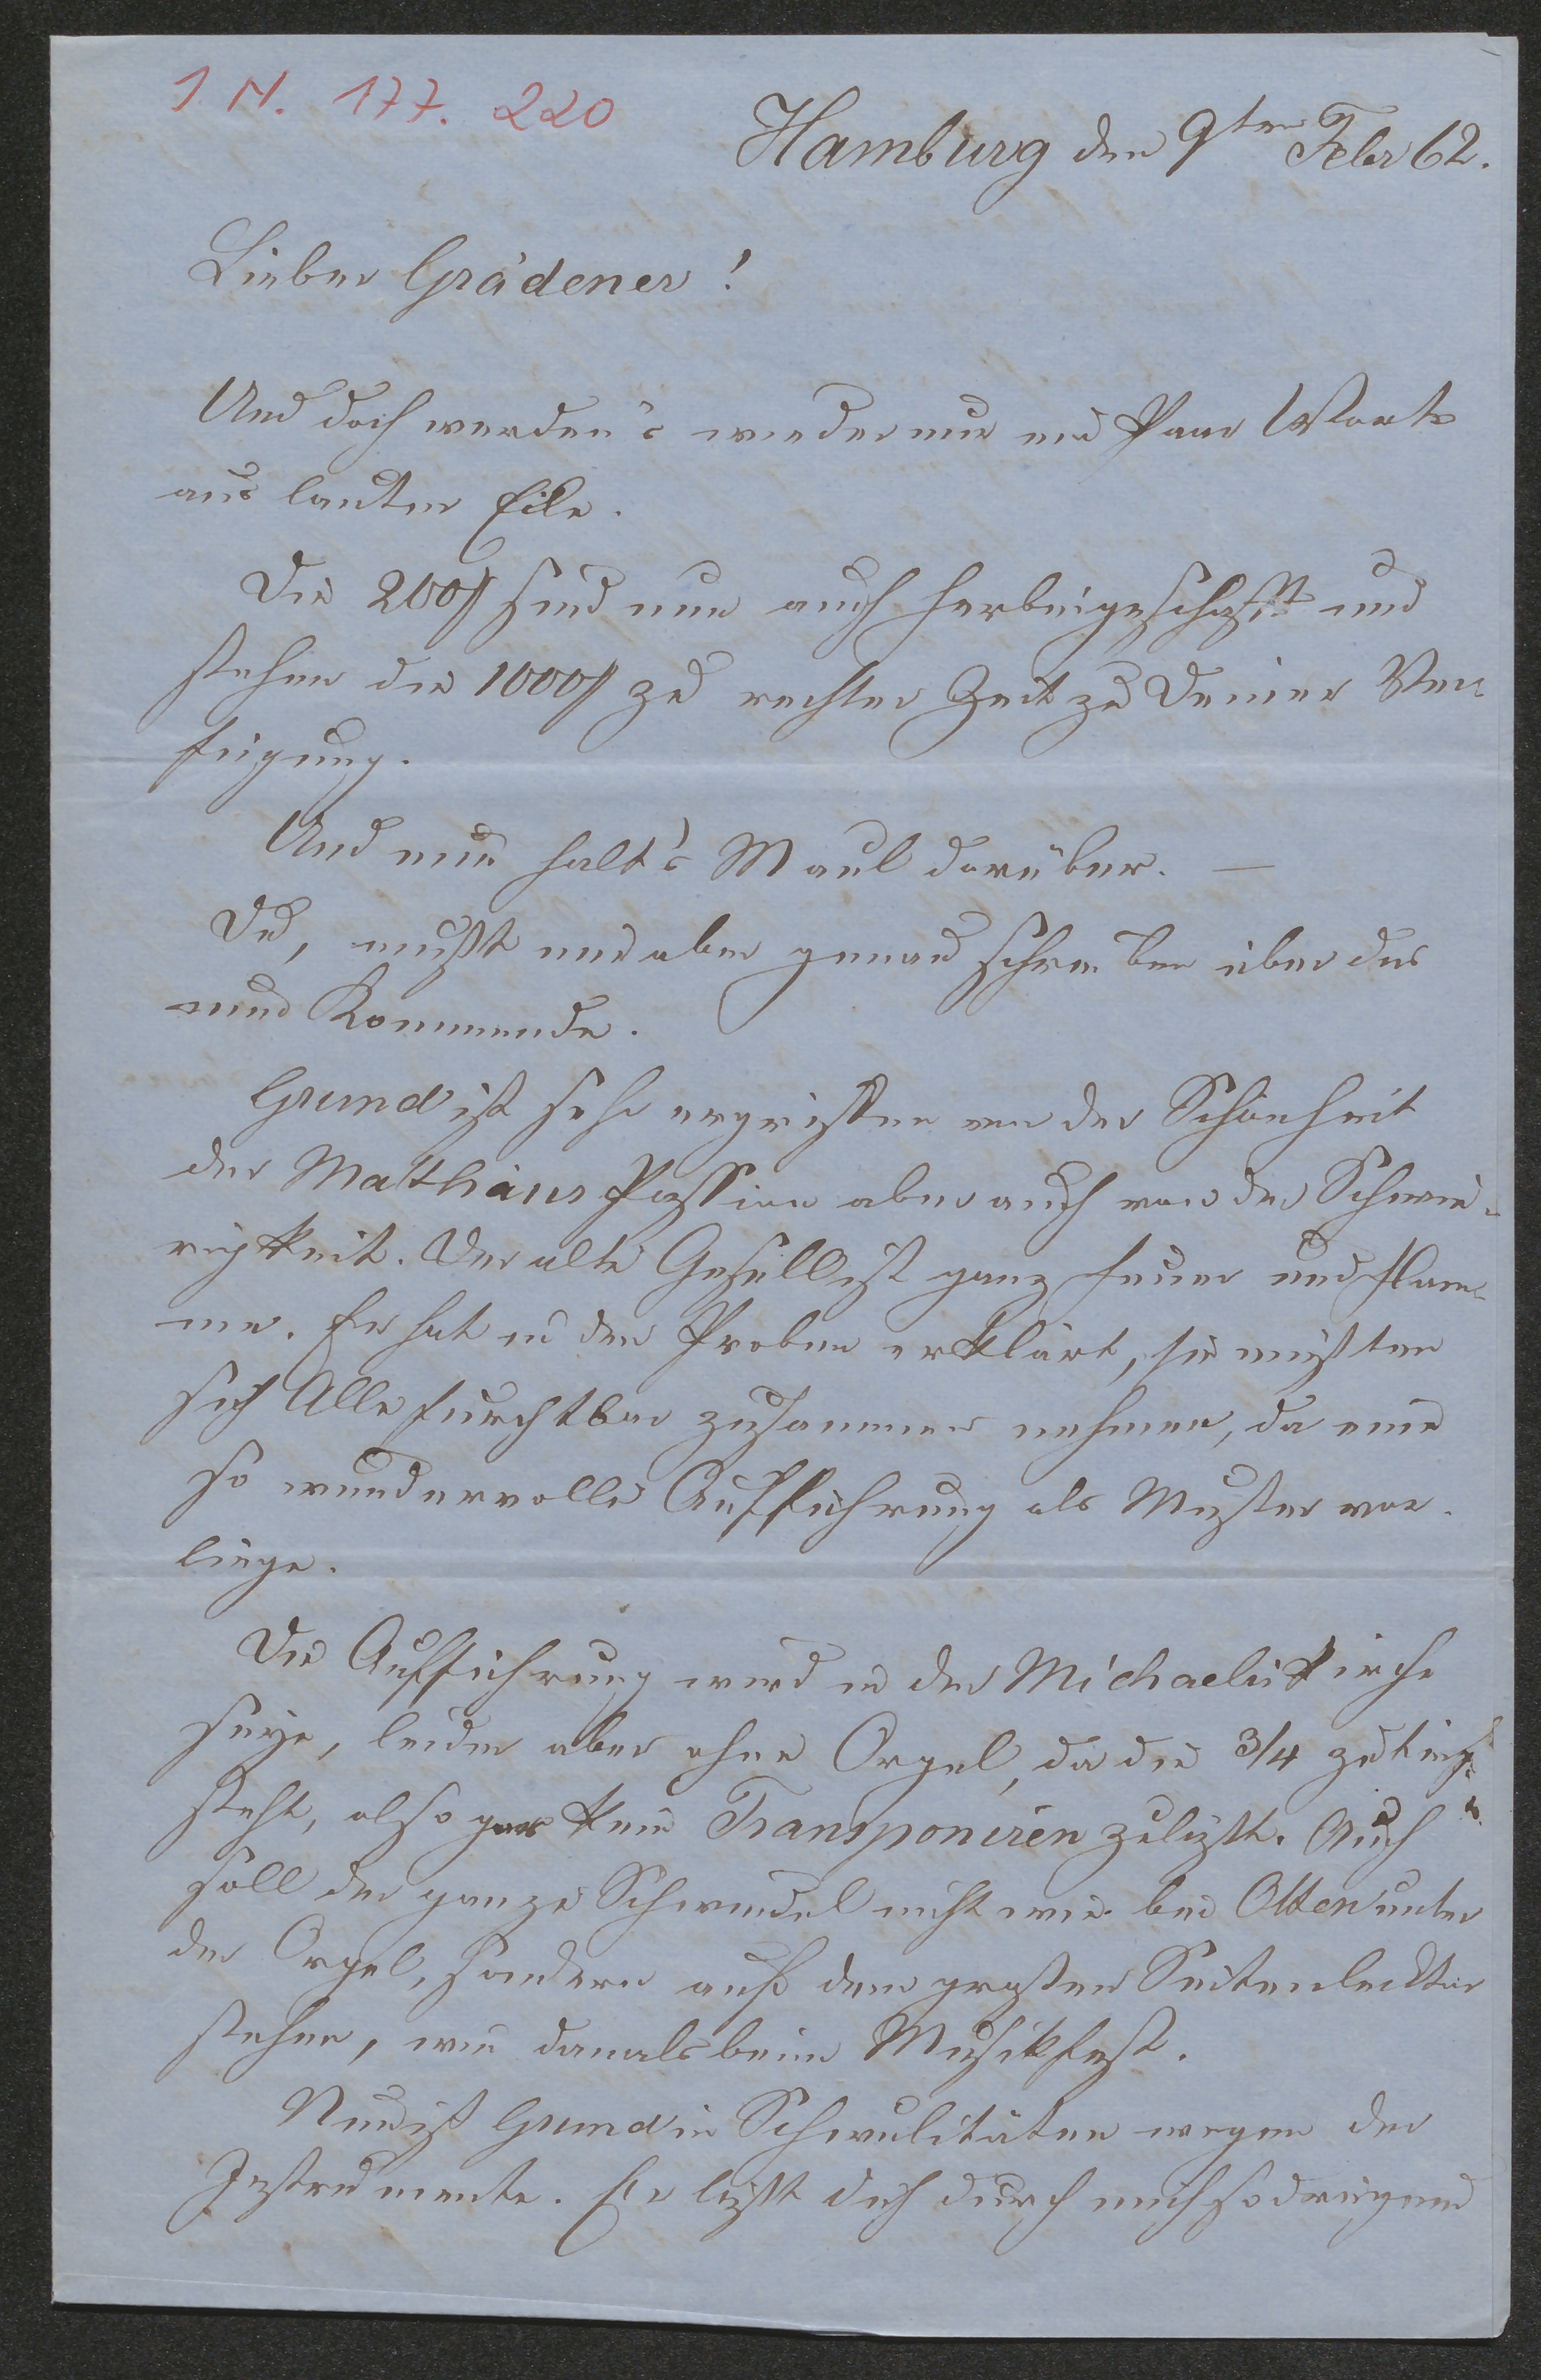 I. N. 177. 220
Hamburg den 9ten Febr 62.
Lieber Grädener!
Und doch werden's wieder nur ein Paar Worte
aus lauter Eile.
Die 200 sind nun auch herbeigeschafft und
stehen die 1000 zu rechter Zeit zu Deiner Ver-
fügung.
Und nun halt's Maul darüber. —
Du, mußt nun aber genau schreiben über das
nun Kommende.
Grund ist sehr ergriffen von der Schönheit
der Matthäus Passion aber auch von der Schwie-
rigkeit. Der alte Gesell ist ganz Feuer und Flam-
me. Er hat in den Proben erklärt, sie müßten
sich Alle furchtbar zusammen nehmen, da eine
so wundervolle Aufführung als Muster vor-
liege.
Die Aufführung wird in der Michaeliskirche
sein, leider aber ohne Orgel, da die 3/4 zu tief
steht, also gar kein Transponiren zuläßt. Auch
soll der ganze Schwindel nicht wie bei Otten unter
der Orgel, sondern auf dem großen Seitenlector
stehen, wie damals beim Musikfest.
Nun ist Grund in Schwulitäten wegen der
Instrumente. Er läßt dich durch mich so dringend